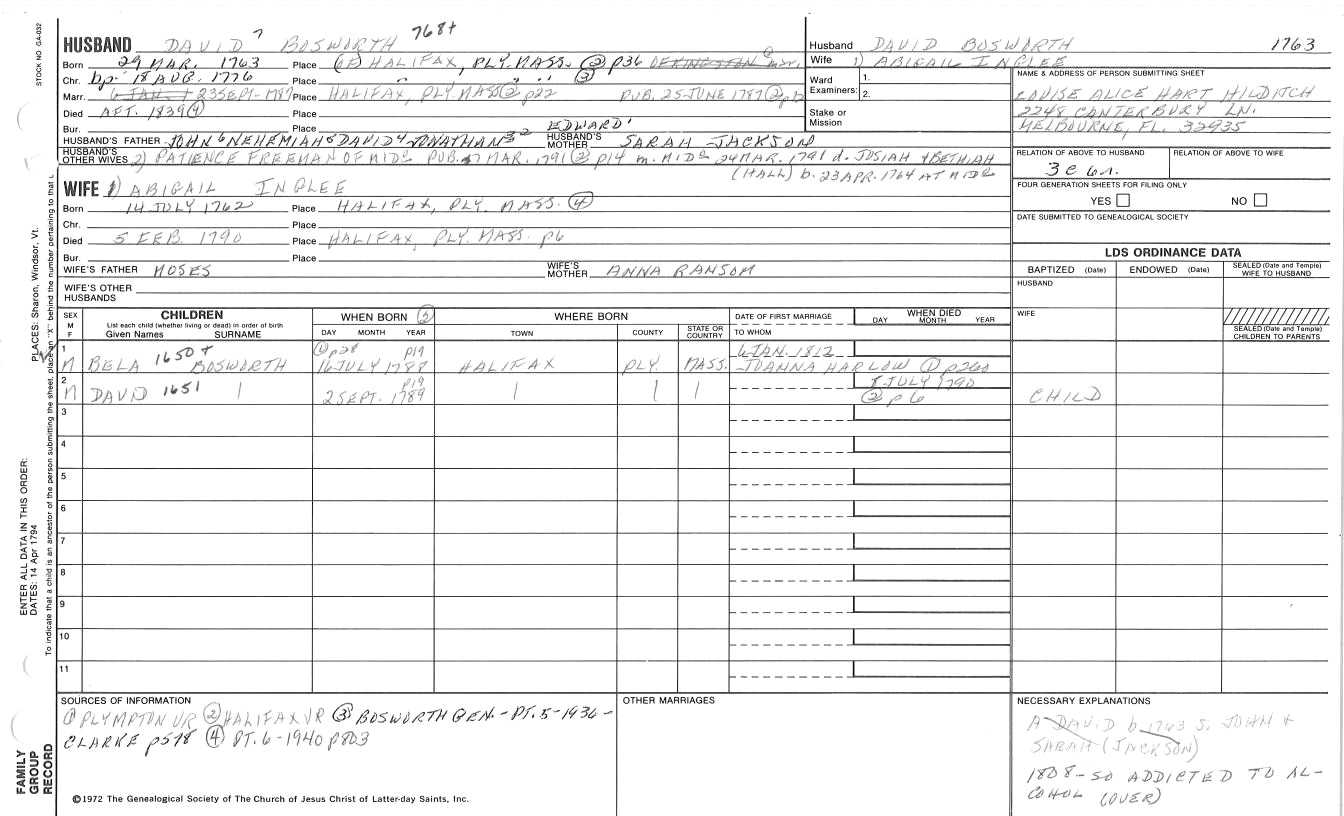 STOCK NO GA-032
HUSBAND DAVID 7 BOSWORTH 768+
Born 29 MAR. 1763 Place HALIFAX, PLY. MASS. ② p36
Chr. bp. 18 AUG. 1776 Place " " " ③
Marr. 6 JAN. 23 SEPT-1787 Place HALIFAX, PLY MASS ② p22 PUB. 25-JUNE 1787 ②
Died AFT. 1839 ④ Place
Bur. Place
HUSBAND'S FATHER JOHN 6 NEHEMIAH 5 DAVID 4 JONATHAN 3 2 EDWARD 1 HUSBAND'S MOTHER SARAH JACKSON
HUSBAND'S OTHER WIVES 2) PATIENCE FREEMAN OF MIDD PUB. 7 MAR. 1791 ② p14 m. MIDD 24 MAR. 1791 d. JOSIAH + BETHIAH
(HALL) b. 23 APR. 1764 AT MIDD
Husband DAVID BOSWORTH 1763
Wife 1) ABIGAIL INGLEE
Ward Examiners: 1.
2.
Stake or Mission
NAME & ADDRESS OF PERSON SUBMITTING SHEET
LOUISE ALICE HART HILDITCH
2248 CANTERBURY LN.
MELBOURNE, FL. 32935
RELATION OF ABOVE TO HUSBAND RELATION OF ABOVE TO WIFE
3 C 6 r.
FOUR GENERATION SHEETS FOR FILING ONLY
YES NO
DATE SUBMITTED TO GENEALOGICAL SOCIETY
WIFE 1) ABIGAIL INGLEE
Born 14 JULY 1762 Place HALIFAX, PLY. MASS. ④
Chr. Place
Died 5 FEB. 1790 Place HALIFAX, PLY. MASS. p6
Bur. Place
WIFE'S FATHER MOSES WIFE'S MOTHER ANNA RANSOM
WIFE'S OTHER HUSBANDS
LDS ORDINANCE DATA
BAPTIZED (Date) ENDOWED (Date) SEALED (Date and Temple) WIFE TO HUSBAND
HUSBAND
WIFE
SEALED (Date and Temple) CHILDREN TO PARENTS
SEX M F
CHILDREN
List each child (whether living or dead) in order of birth
Given Names SURNAME
WHEN BORN ③
DAY MONTH YEAR
WHERE BORN
TOWN COUNTY STATE OR COUNTRY
DATE OF FIRST MARRIAGE
TO WHOM
WHEN DIED
DAY MONTH YEAR
1 ① p28 p19 6 JAN. 1812
M BELA 1650+ BOSWORTH 16 JULY 1788 HALIFAX PLY. MASS. JOANNA HARLOW ① p260
2 p19 JULY 1790
M DAVID 1651 2 SEPT. 1789 ② p6 CHILD
3
4
5
6
7
8
9
10
11
SOURCES OF INFORMATION
① PLYMPTON VR ② HALIFAX VR ③ BOSWORTH GEN. - PT. 5 - 1936 -
CLARKE p578 ④ PT. 6 - 1940 p803
OTHER MARRIAGES
NECESSARY EXPLANATIONS
A DAVID b. 1763 S. JOHN +
SARAH (JACKSON)
1808 - SO ADDICTED TO AL-
COHOL (OVER)
©1972 The Genealogical Society of The Church of Jesus Christ of Latter-day Saints, Inc.
FAMILY GROUP RECORD
ENTER ALL DATA IN THIS ORDER:
DATES: 14 Apr 1794
PLACES: Sharon, Windsor, Vt.
To indicate that a child is an ancestor of the person submitting the sheet, place an "X" behind the number pertaining to that